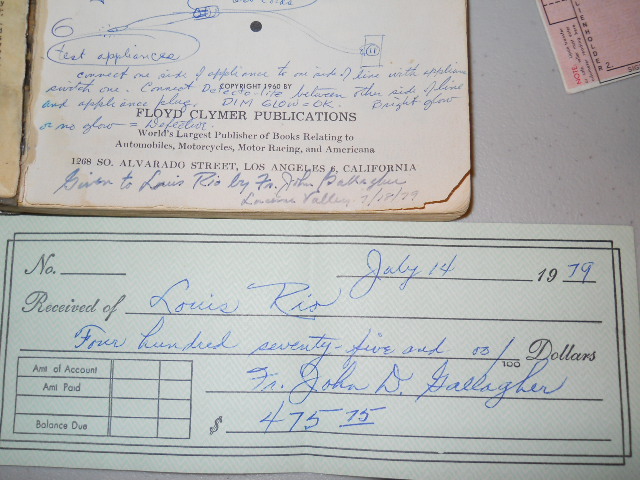 6
test appliances
connect one side of appliance to one side of line with appliance
switch one. Connect Detecto-lite between other side of line
COPYRIGHT 1960 BY
and appliance plug. DIM GLOW = OK. Bright glow
FLOYD CLYMER PUBLICATIONS
or no glow = Defective.
World's Largest Publisher of Books Relating to
Automobiles, Motorcycles, Motor Racing, and Americana
1268 SO. ALVARADO STREET, LOS ANGELES 6, CALIFORNIA
Given to Louis Rio by Fr. John Gallagher
Valley 7/18/79
No.
July 14 1979
Received of Louis Rio
Four hundred seventy-five and 00/100 Dollars
Amt of Account
Fr. John D. Gallagher
Amt Paid
$ 475 75
Balance Due
NOTE